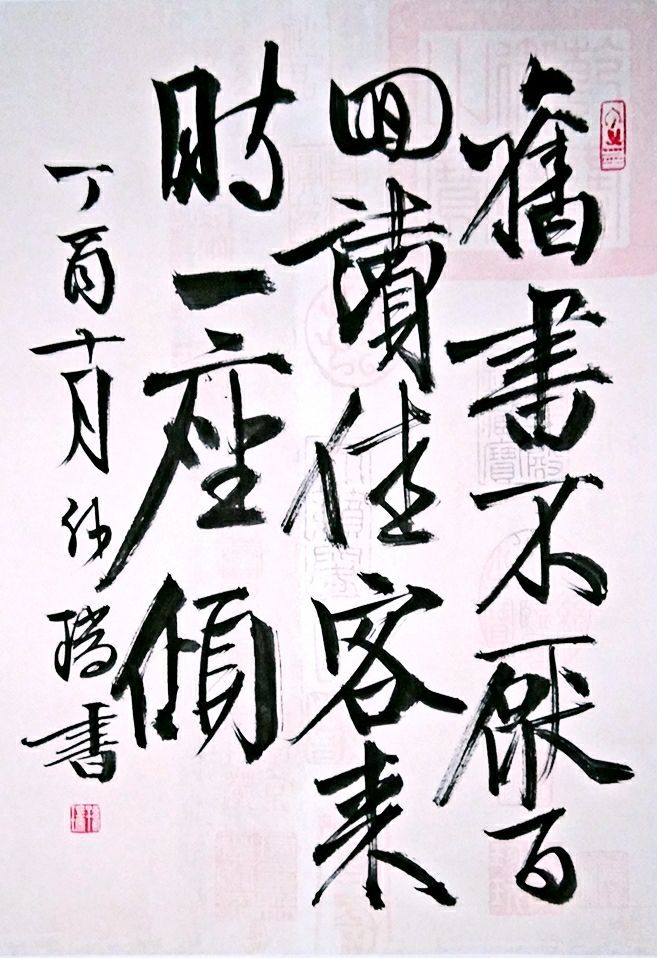 舊書不厭百
回讀佳客来
时一座傾
丁酉十月書